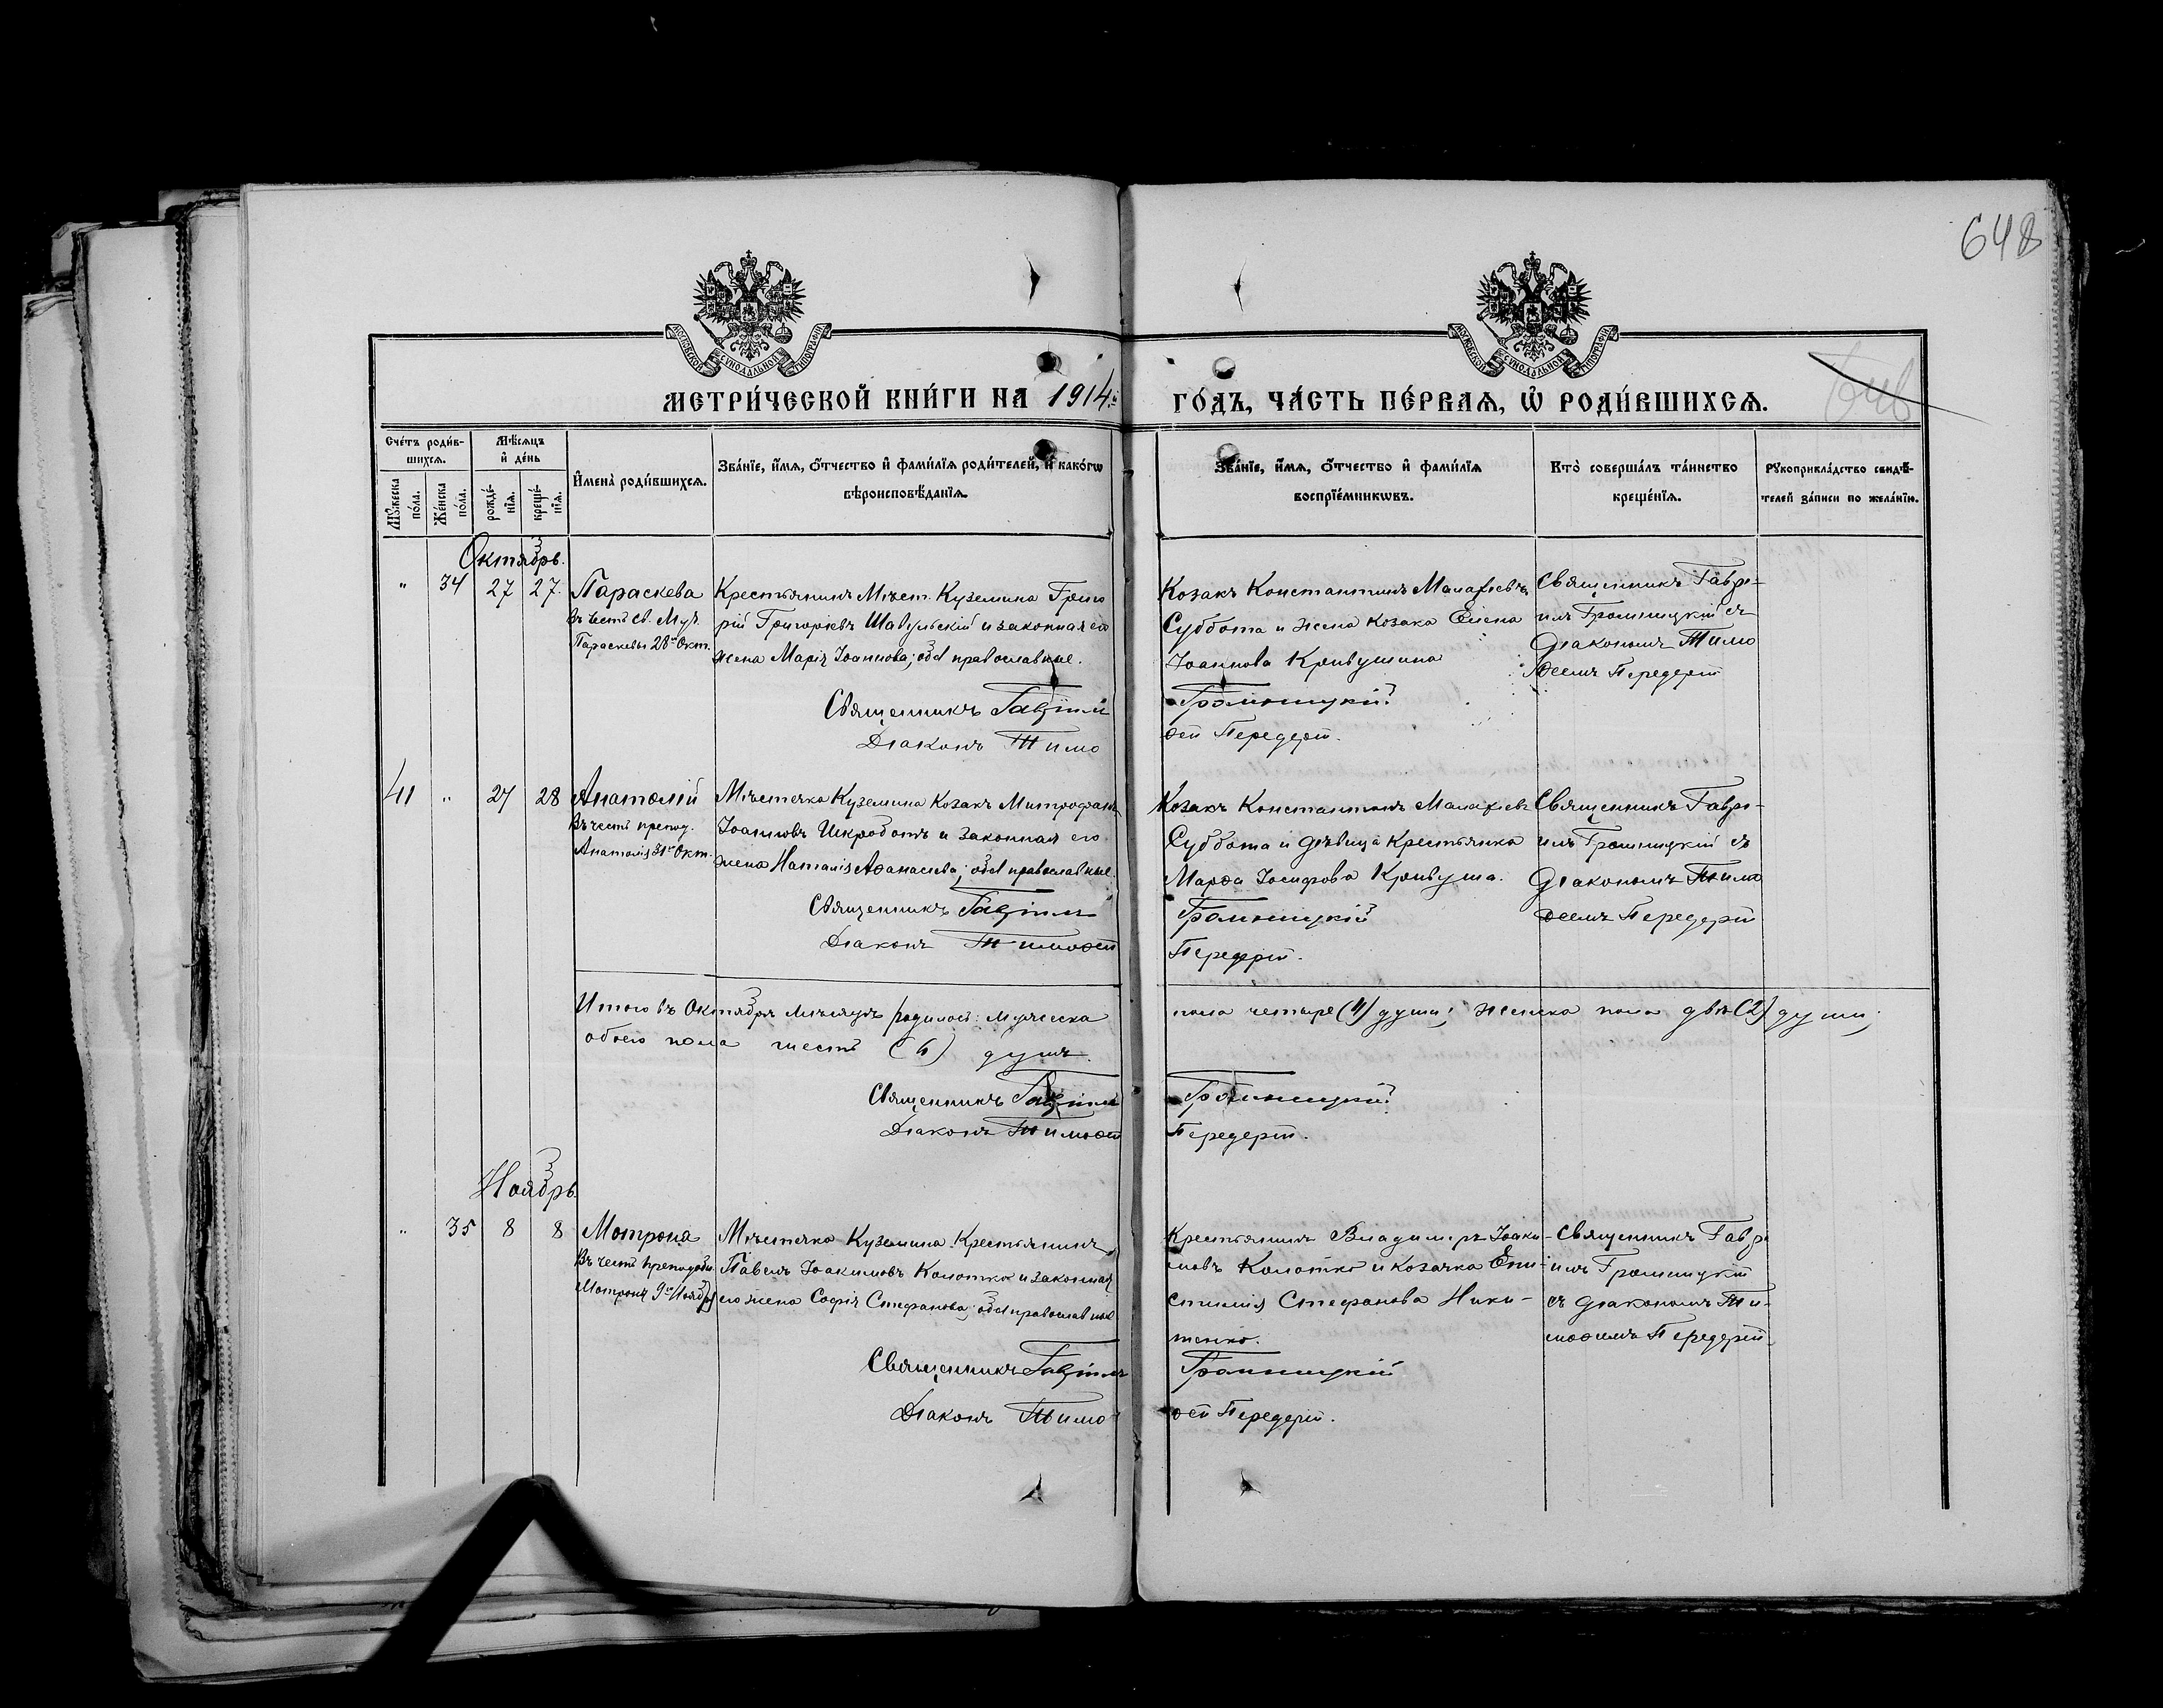 648
МОСКОВСКОЙ СѴНОДАЛЬНОЙ ТИПОГРАФІИ
МОСКОВСКОЙ СѴНОДАЛЬНОЙ ТИПОГРАФІИ
МЕТРИ́ЧЕСКОЙ КНИ́ГИ НА 1914й
ГО́ДЪ, ЧА́СТЬ ПЕ́РВАѦ, Ѡ҆ РОДИ́ВШИХСѦ.
Сче́тъ роди́в-
шихсѧ.
Мѣ́сѧцъ
и҆ де́нь
Мꙋ́жеска
по́ла.
Же́нска
по́ла.
рожде́-
нїѧ.
креще́-
нїѧ.
И҆мена̀ роди́вшихсѧ.
Зва́нїе, и҆́мѧ, ѻ҆́тчество и҆ фами́лїѧ роди́телей, и҆ како́гѡ
вѣроисповѣ́данїѧ.
Зва́нїе, и҆́мѧ, ѻ҆́тчество и҆ фами́лїѧ
воспрїе́мникѡвъ.
Кто̀ соверша́лъ та́инство
креще́нїѧ.
Рꙋкоприкла́дство свидѣ́-
телей за́писи по жела́нїю.
Октябрь.
" 34 27 27.
Параскева
Въ честь св. Муч.
Параскевы 28го Окт.
Крестьянинъ Мѣст. Куземина Григо
рій Григоріевъ и законная его
жена Марія Іоаннова; оба православные.
Священникъ Гавріилъ
Діаконъ Тимо
Козакъ Константинъ Малахіевъ
Суббота и жена козака Елена
Іоаннова Кривушина
Громницкій
ѳей Передерій.
Священникъ Гаврі-
илъ Громницкій съ
Діакономъ Тимо
ѳеемъ Передерій
41 " 27 28
Анатолій
Въ честь препод.
Анатолія 31го Окт.
Мѣстечка Куземина Козакъ Митрофанъ
Іоанновъ Искроботъ и законная его
жена Наталія Аѳанасіева; оба православные.
Священникъ Гавріилъ
Діаконъ Тимоѳей
Козакъ Константинъ Малахіевъ
Суббота и дѣвица Крестьянка
Марѳа Іосифова Кривуша.
Громницкій
Передерій.
Священникъ Гаврі-
илъ Громницкій съ
Діакономъ Тимо
ѳеемъ Передерій
Итого въ Октябрѣ мѣсяцѣ родилось: мужеска
пола четыре (4) души; женска пола двѣ (2) души;
обоего пола шесть (6) душъ.
Священникъ Гавріилъ
Діаконъ Тимоѳей
Громницкій
Передерій.
Ноябрь
" 35 8 8
Мотрона
Въ честь преподобн.
Мотроны 9го Ноября
Мѣстечка Куземина Крестьянинъ
Павелъ Іоакимовъ Колотко и законная
его жена Софія Стефанова; оба православные
Священникъ Гавріилъ
Діаконъ Тимо
Крестьянинъ Владиміръ Іоаки-
мовъ Колотко и козачка Епи-
стимія Стефанова Ники-
тенко.
Громницкій
ѳей Передерій.
Священникъ Гаврі
илъ Громницкій
съ діакономъ Ти-
моѳеемъ Передерій